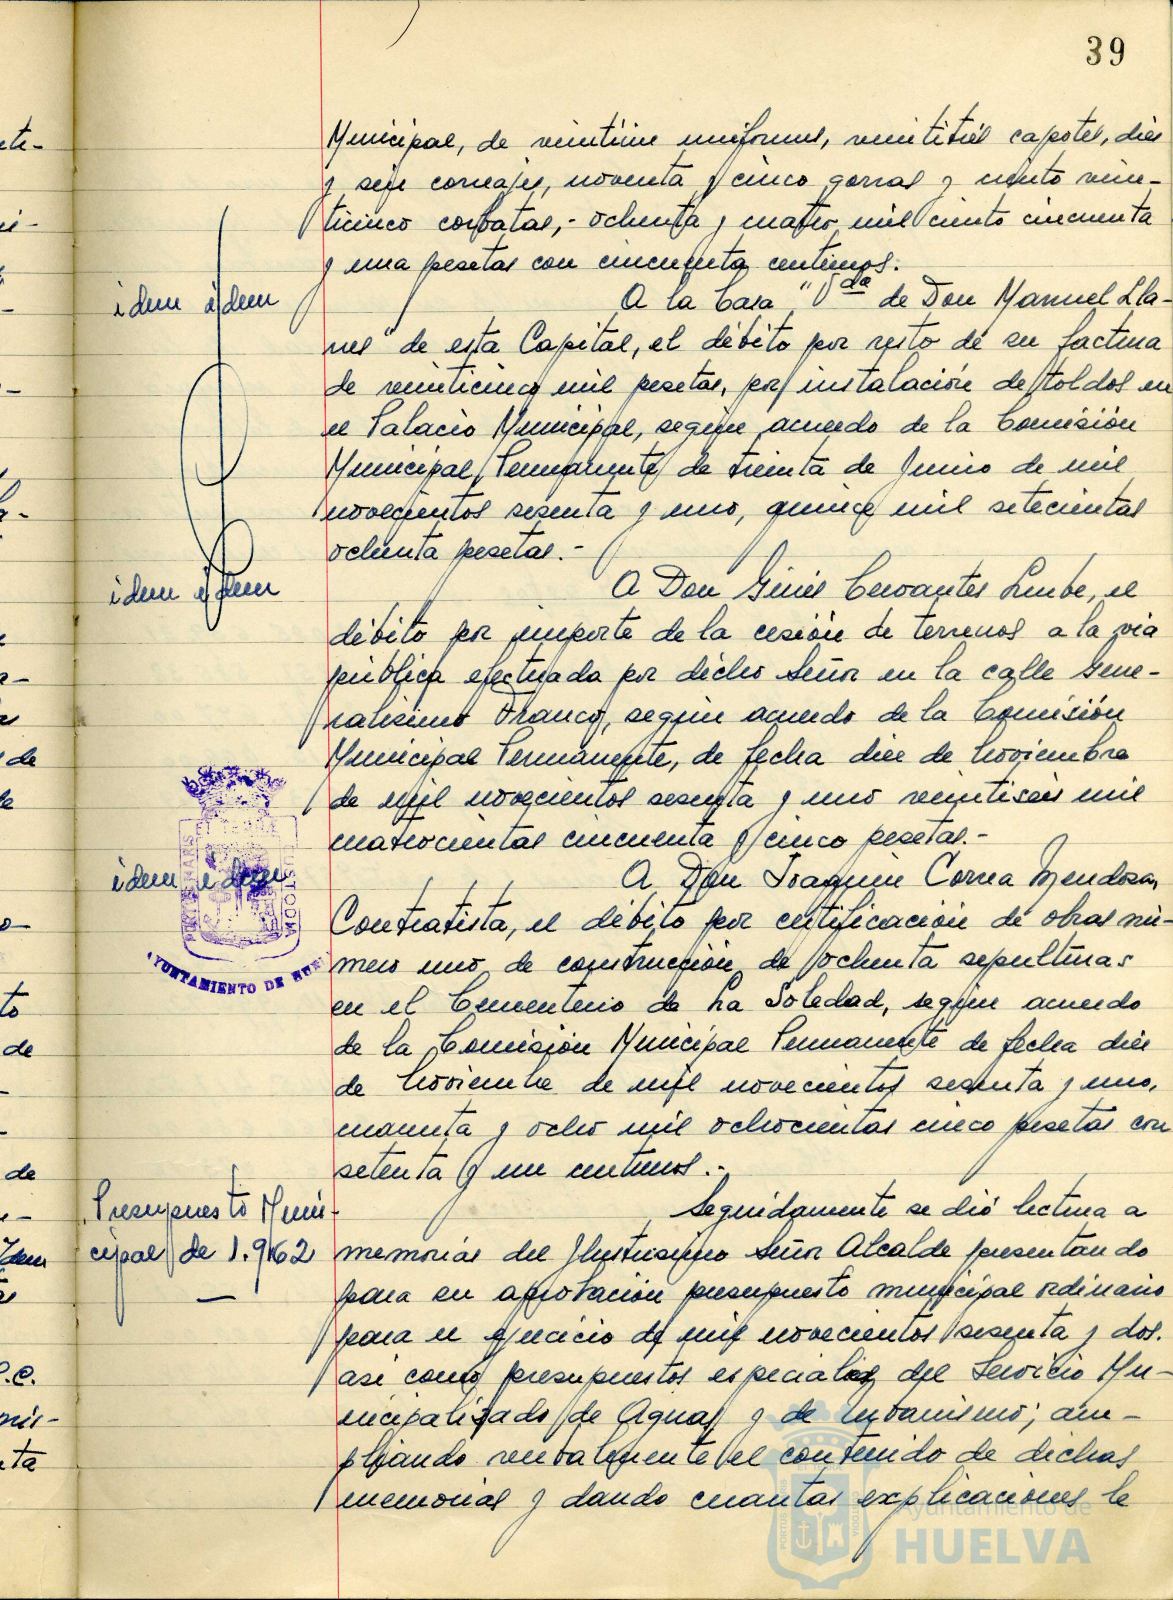 39
Municipal, de veintiún uniformes, veintitrés capotes, diez
y seis correajes, noventa y cinco gorras y ciento vein-
ticinco corbatas,- ochenta y cuatro mil ciento cincuenta
y una pesetas con cincuenta centimos.
idem idem
A la Casa "Vda de Don Manuel Lla-
nes" de esta Capital, el débito por resto de su factura
de veinticinco mil pesetas, por instalación de toldos en
el Palacio Municipal, según acuerdo de la Comisión
Municipal Permanente de treinta de Junio de mil
novecientos sesenta y uno, quince mil setecientas
ochenta pesetas.-
idem idem
A Don Ginés Cervantes, el
débito por importe de la cesión de terrenos a la vía
pública efectuada por dicho Señor en la calle Gene-
ralísimo Franco, según acuerdo de la Comisión
Municipal Permanente, de fecha diez de Noviembre
de mil novecientos sesenta y uno veintiseis mil
cuatrocientas cincuenta y cinco pesetas.-
idem idem
A Don Joaquin Correa Mendoza,
Contratista, el débito por certificación de obras nú-
mero uno de construcción de ochenta sepulturas
en el Cementerio de La Soledad, según acuerdo
de la Comisión Municipal Permanente de fecha diez
de Noviembre de mil novecientos sesenta y uno,
cuarenta y ocho mil ochocientas cinco pesetas con
setenta y un centimos.-
AYUNTAMIENTO DE HUE
Presupuesto Muni-
cipal de 1.962
Seguidamente se dió lectura a
memorias del Ilustrisimo Señor Alcalde presentando
para su aprobación presupuesto municipal ordinario
para el ejercicio de mil novecientos sesenta y dos.
asi como presupuestos especiales del Servicio Mu-
nicipalizado de Aguas y de Urbanismo; am-
pliando verbalmente el contenido de dichas
memorias y dando cuantas explicaciones le
Ayuntamiento de
HUELVA